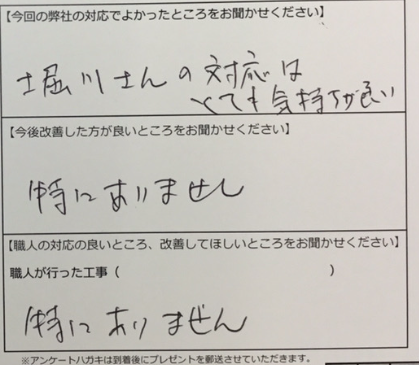 【今回の弊社の対応でよかったところをお聞かせください】
堀川さんの対応は
とても気持ちが良い
【今後改善した方が良いところをお聞かせください】
特にありません
【職人の対応の良いところ、改善してほしいところをお聞かせください】
職人が行った工事（　　　　　　　　　　）
特にありません
※アンケートハガキは到着後にプレゼントを郵送させていただきます。